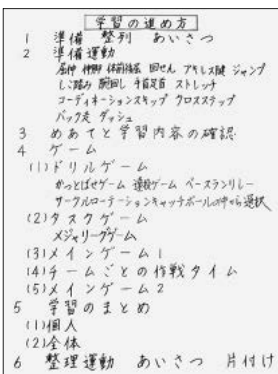 学習の進め方
1 準備 整列 あいさつ
2 準備運動
屈伸 伸脚 体前後屈 回せん アキレス腱 ジャンプ
しこ踏み 腕回し 手首足首 ストレッチ
コーディネーションスキップ クロスステップ
バック走 ダッシュ
3 めあてと学習内容の確認
4 ゲーム
(1)ドリルゲーム
かっとばせゲーム 遠投ゲーム ベースランリレー
サークルローテーションキャッチボールの中から選択
(2)タスクゲーム
メジャリーグゲーム
(3)メインゲーム1
(4)チームごとの作戦タイム
(5)メインゲーム2
5 学習のまとめ
(1)個人
(2)全体
6 整理運動 あいさつ 片付け